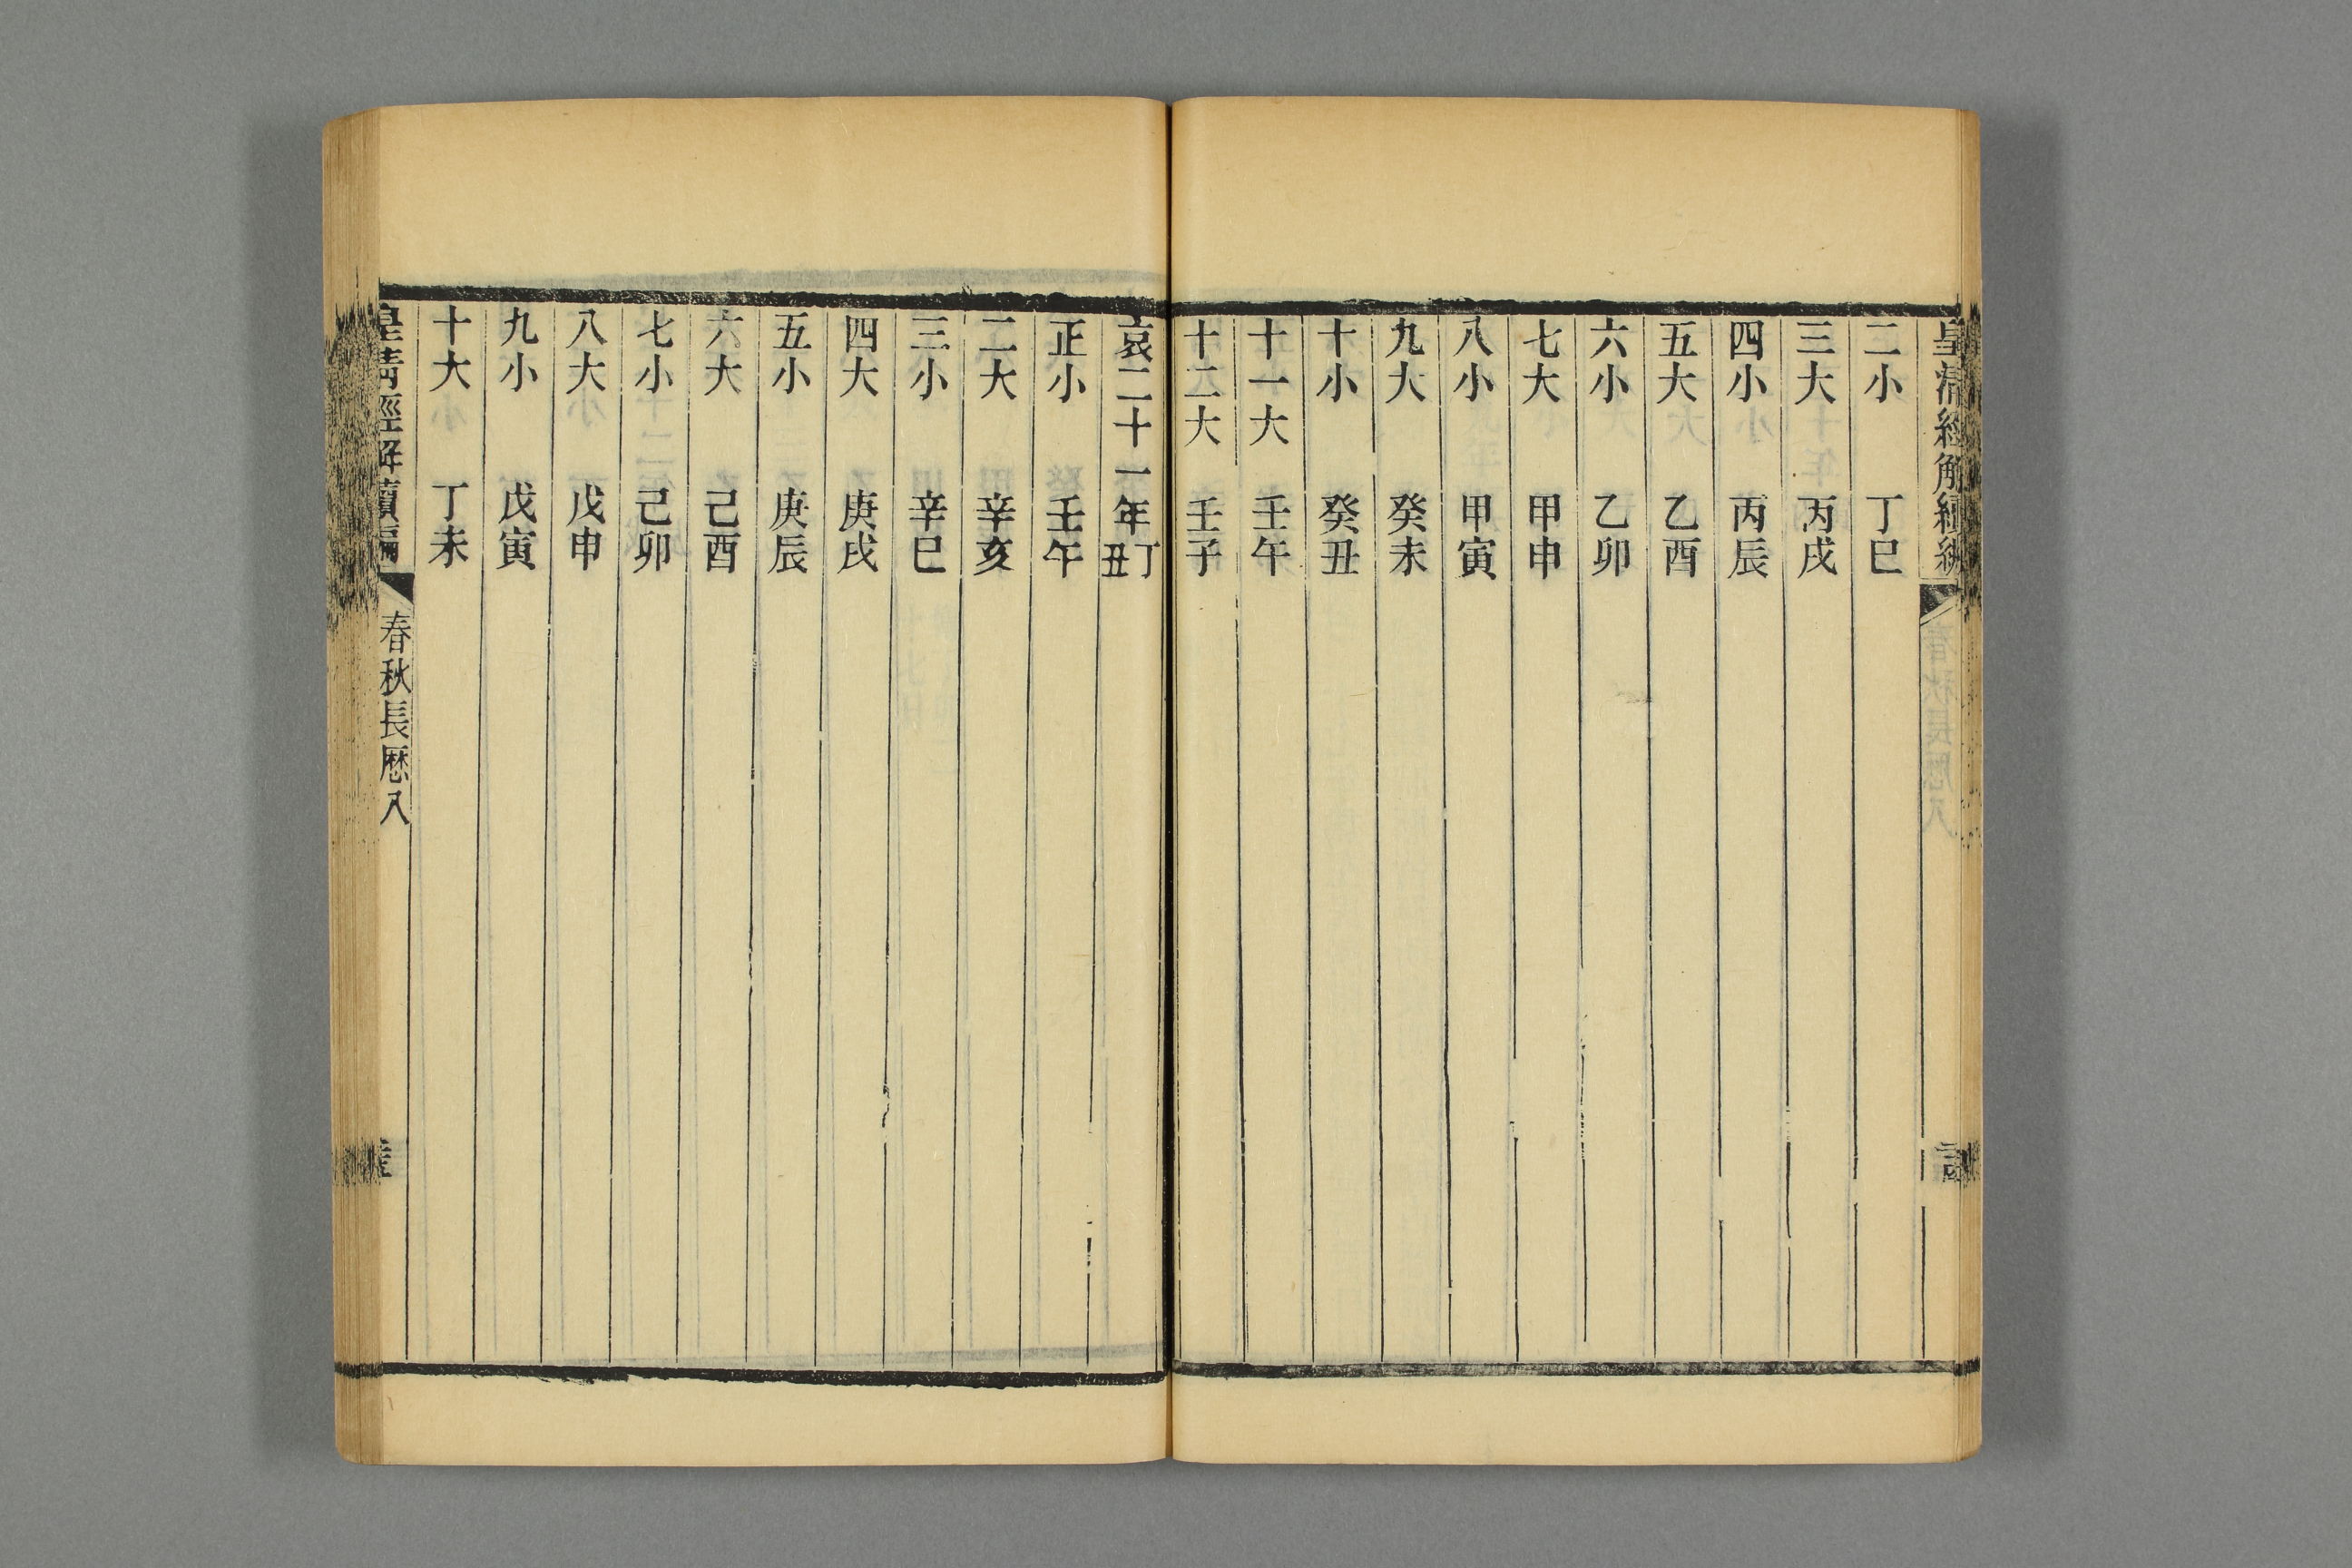 皇清經解續編
二小 丁巳
三大 丙戌
四小 丙辰
五大 乙酉
六小 乙卯
七大 甲申
八小 甲寅
九大 癸未
十小 癸丑
十一大 壬午
十二大 壬子
哀二十一年丁丑
正小 壬午
二大 辛亥
三小 辛巳
四大 庚戌
五小 庚辰
六大 己酉
七小 己卯
八大 戊申
九小 戊寅
十大 丁未
皇清經解續編 春秋長厤八